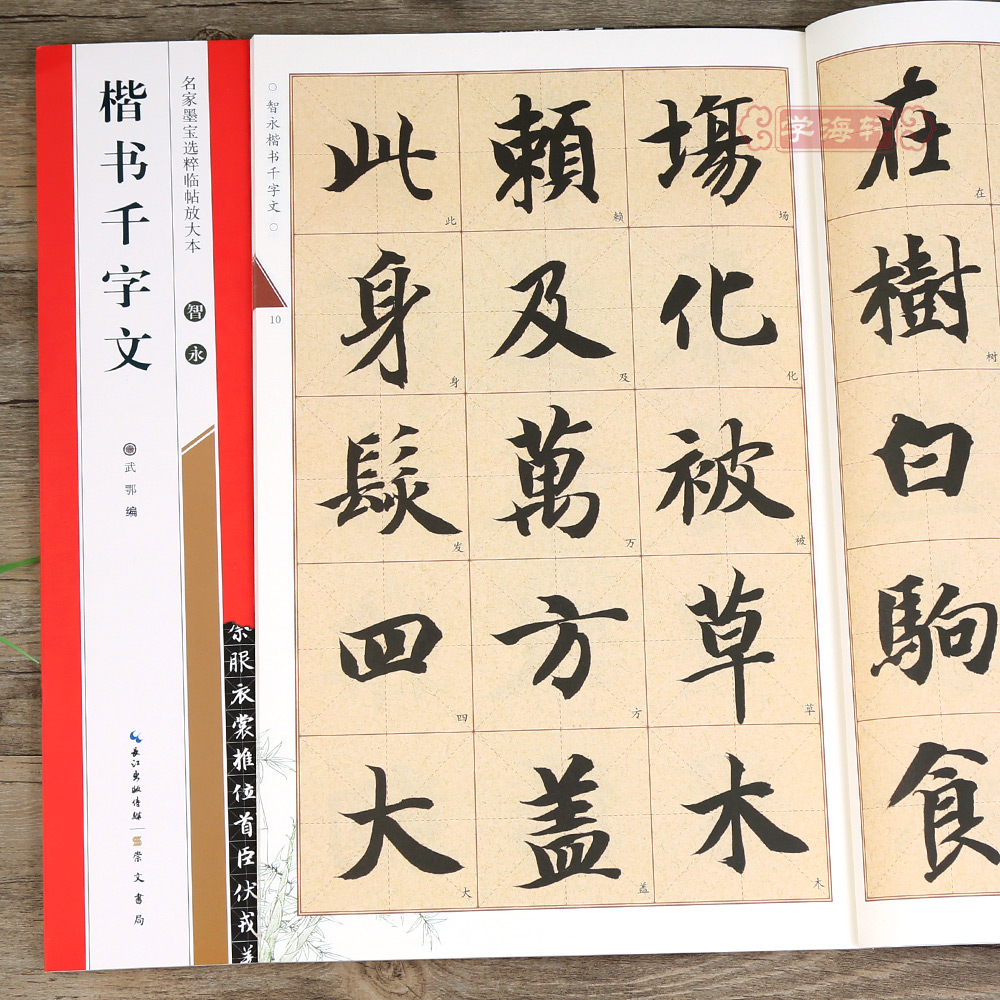 楷书千字文
名家墨宝选粹临帖放大本
智永
武鄂 编
长江出版传媒
崇文書局
服衣裳推位首臣伏戎
智永楷书千字文
10
学海轩
在樹白駒食
在树
場化被草木
场化被草木
賴及萬方盖
赖及万方盖
此身髮四大
此身发四大